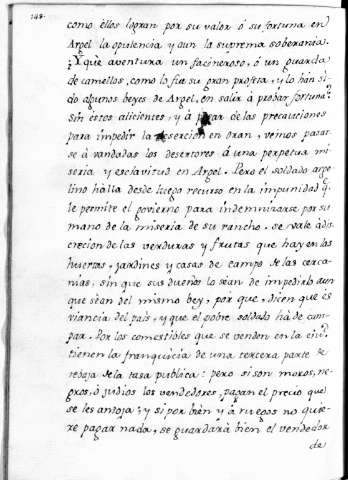 148.
como ellos logran por su valor ó su fortuna en
Argel la opulencia y aun la suprema soberania.
¿Yquè aventura un facineroso, ó un guarda
de camellos, como lo fue su gran profeta, y lo han si-
do algunos beyes de Argel, en salir à probar fortuna?
Sin estos alicientes, y à pesar de las precauciones
para impedir la deserción en Oran, veìmos pasar
se à vandadas los desertores á una perpetua mi
seria y esclavitud en Argel. Pero el soldado arge
lino halla desde luego recurso en la impunidad q.
le permite el govierno para indemnizarse por su
mano de la miseria de su rancho. se vale à dis
crecion de las verduras y frutas que hay en las
huertas, jardines y casas de campo de las cerca-
nias, sin que sus dueños lo sean de impedirlo aun
que sean del mismo bey, por que, dicen que es
viancia del país, y que el pobre soldado hà de cam-
par. Por los comestibles que se venden en la ciud.
tienen la franquicia de una tercera parte de
rebaja de la tasa publica: pero si son moros, ne
gros, ó judios los vendedores, pagan el precio que
se les antoja; y si por bièn y à ruegos no quie-
re pagar nada, se guardarà bien el vendedor
de